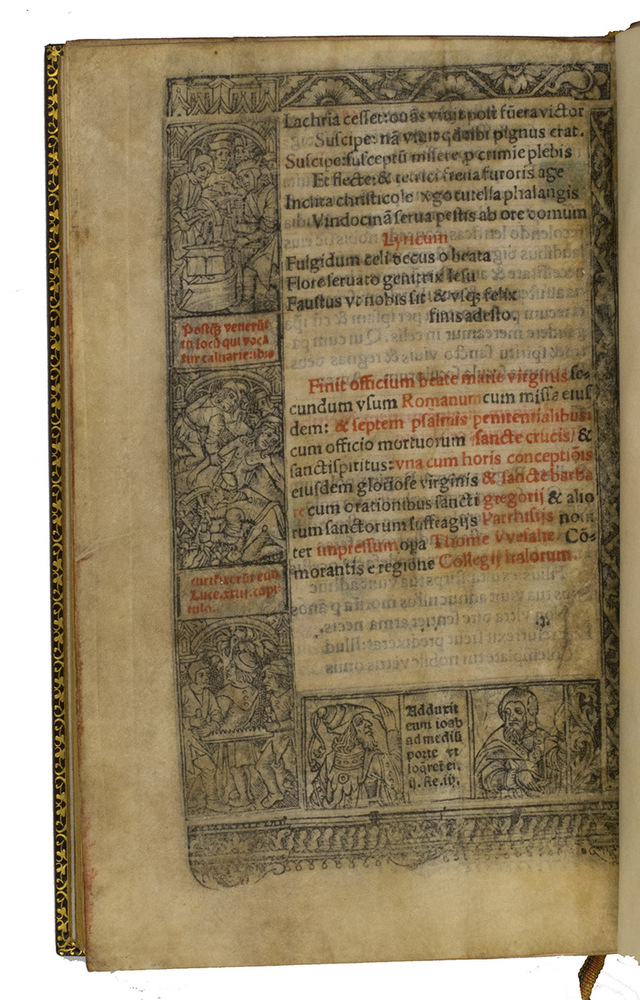 Lachria cesset: quãs viuit post fũera victor
Suscipe: nã viuit q̃ tibi pignus erat.
Suscipe: susceptũ misere p crimie plebis
Et flecte: & tetrici frena furoris age
Inclita christicole xgo tutella phalangis
Vindocinã serua pestis ab ore domum
Lyricum
Fulgidum celi decus o beata
Flore seruato genitrix Iesu
Faustus vt nobis sit & vsq; felix
finis adesto.
Finit officium beate marie virginis se-
cundum vsum Romanum cum missa eius
dem: & septem psalmis penitentialibus:
cum officio mortuorum sancte crucis/ &
sanctispiritus: vna cum horis conceptiõis
eiusdem gloriose virginis & sancte barba
re cum orationibus sancti gregorij & alio
rum sanctorum suffragijs Parrhisijs nou
ter impressum opa Thome
Cõ-
morantis e regione Collegij italorum.
Postq̃ venerũt
in locũ qui voca
tur caluarie: ibi
crucifixerũt eũ
Luce. xxiij. capi
tulo.
Adduxit
eum ioab
ad mediũ
porte vt
loq̃ret ei.
ij. Re. iij.